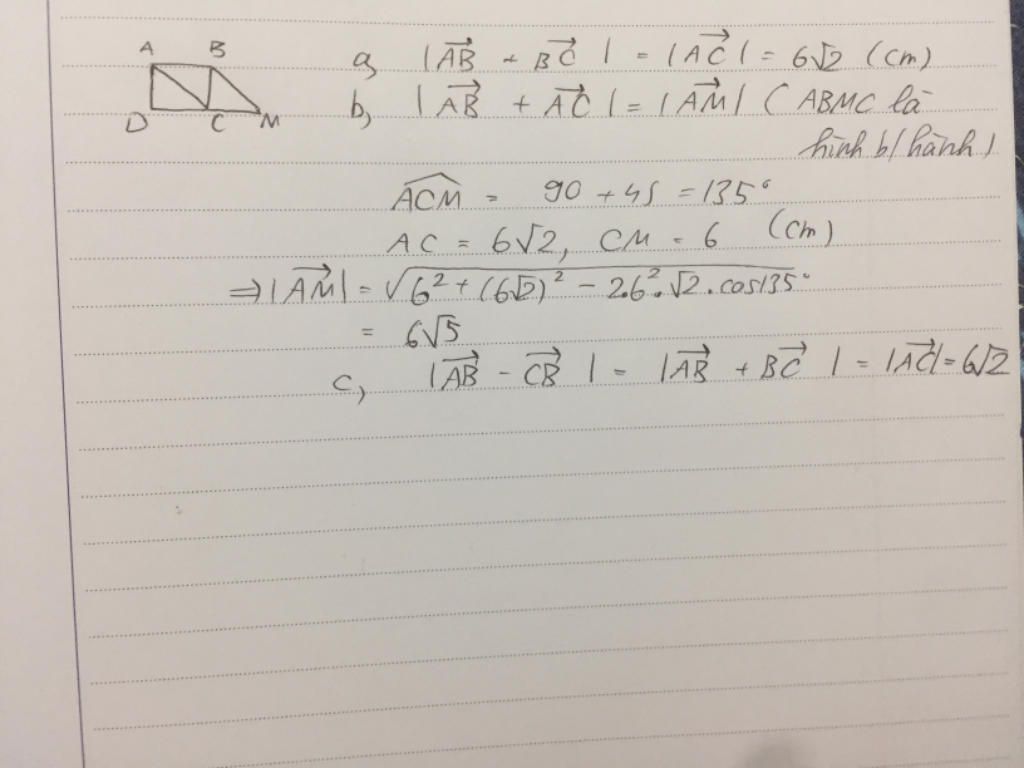 A B
D C M
a, |AB→ + BC→| = |AC→| = 6√2 (cm)
b, |AB→ + AC→| = |AM→| ( ABMC là
hình b/hành )
ACM^ = 90 + 45 = 135°
AC = 6√2, CM = 6 (cm)
⇒ |AM→| = √(6² + (6√2)² - 2.6².√2.cos135°)
= 6√5
c, |AB→ - CB→| = |AB→ + BC→| = |AC→| = 6√2